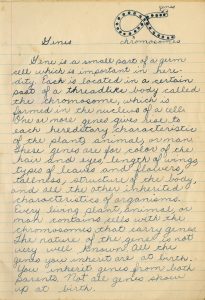 genes
Genes chromosomes
Gene is a small part of a germ
cell which is important in here-
dity. Each is located in a certain
part of a threadlike body called
the chromosome, which is
formed in the nucleus of a cell.
One or more genes gives rise to
each hereditary characteristic
of the plant, animal, or man.
These genes are for color of the
hair and eyes, length of wings,
types of leaves and flowers,
tallness, structure of the body
and all the other inherited
characteristics of organisms.
Every living plant, animal, or
man contains cells with the
chromosomes that carry genes.
The nature of the gene is not
very well known. All the
genes you inherit are at birth.
You inherit genes from both
parents. Not all genes show
up at birth.